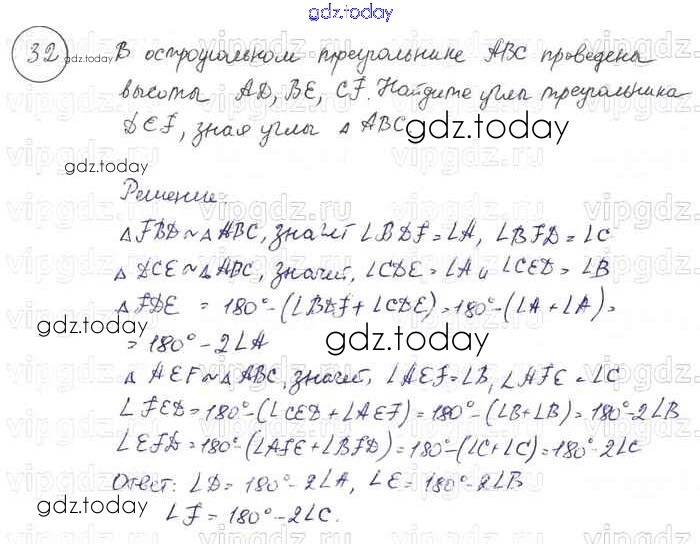 gdz.today
32 В остроугольном треугольнике ABC проведены
gdz.today
высоты AD, BE, CF. Найдите углы треугольника
DEF, зная углы △ ABC
gdz.today
gdz.today
Решение:
△ FBD ~ △ ABC, значит ∠BDF = ∠A, ∠BFD = ∠C
△ DCE ~ △ ABC, значит, ∠CDE = ∠A и ∠CED = ∠B
△ FDE = 180° - (∠BDF + ∠CDE) = 180° - (∠A + ∠A) =
gdz.today
= 180° - 2∠A
gdz.today
△ AEF ~ △ ABC, значит, ∠AEF = ∠B, ∠AFE = ∠C
∠FED = 180° - (∠CED + ∠AEF) = 180° - (∠B + ∠B) = 180° - 2∠B
∠EFD = 180° - (∠AFE + ∠BFD) = 180° - (∠C + ∠C) = 180° - 2∠C
gdz.today
Ответ: ∠D = 180° - 2∠A, ∠E = 180° - 2∠B
gdz.today
∠F = 180° - 2∠C.